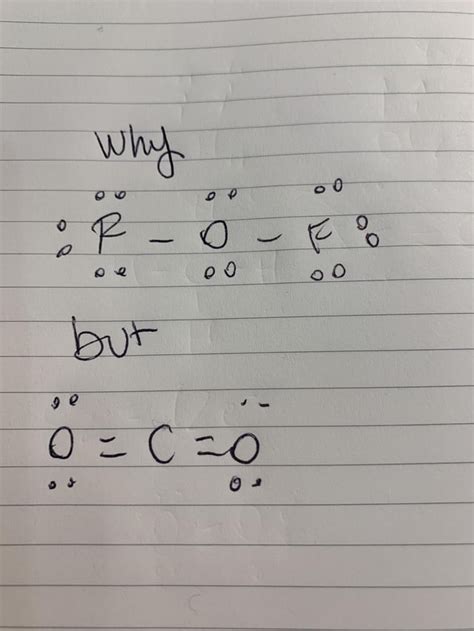 Why
F - O - F
but
O = C = O